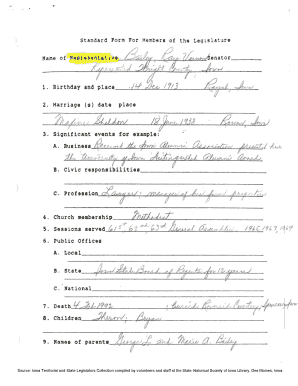 Standard Form For Members of the Legislature
Name of Representative Bailey, Ray Vernon Senator
Represented Wright County, Iowa
1. Birthday and place 14 Dec 1913 Royal, Iowa
2. Marriage (s) date place
Sheldon 12 June 1938 Iowa
3. Significant events for example:
A. Business Received the Iowa Alumni Association presented him
the University of Iowa Distinguished Alumni Awards
B. Civic responsibilities
C. Profession Lawyer; manager of farm properties
4. Church membership Methodist
5. Sessions served 61st, 62nd, 63rd General Assemblies 1965, 1967, 1969
6. Public Offices
A. Local
B. State Iowa State Board of Regents for
C. National
7. Death 4 1992 ; buried
8. Children Theron; Bryan
9. Names of parents George L. and Marie A. Bailey
Source: Iowa Territorial and State Legislators Collection compiled by volunteers and staff at the State Historical Society of Iowa Library, Des Moines, Iowa.